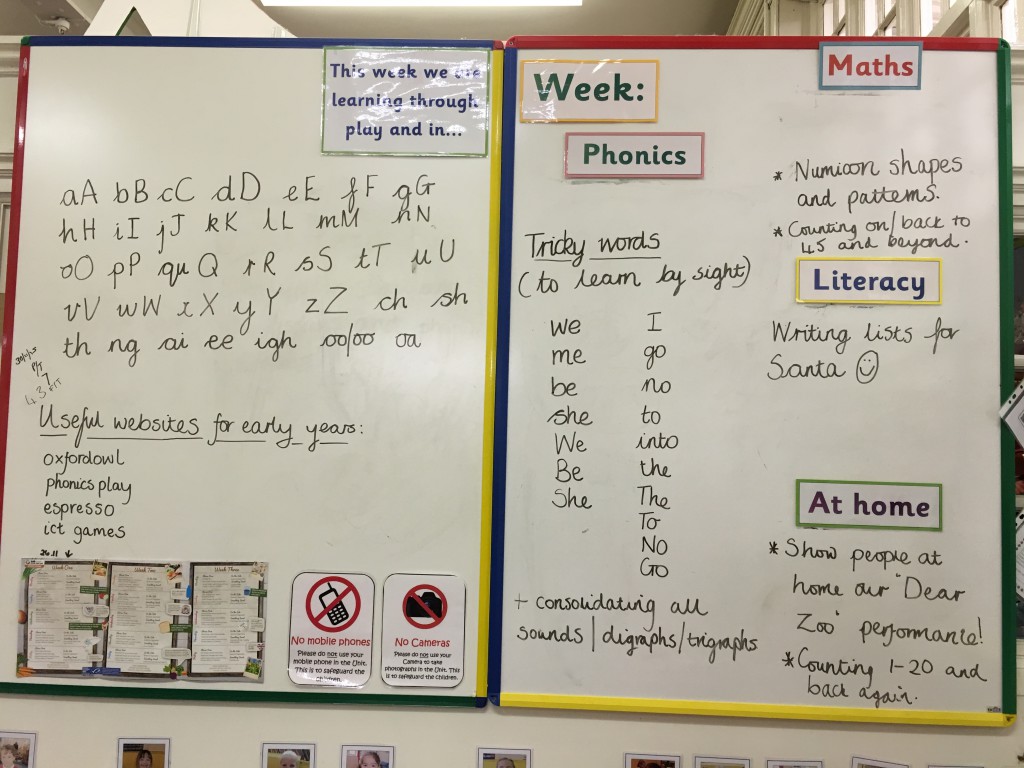 This week we are
learning through
play and in...
aA bB cC dD eE fF gG
hH iI jJ kK lL mM nN
oO pP qu Q rR sS tT uU
vV wW xX yY zZ ch sh
th ng ai ee igh oo/oo oa
Useful websites for early years:
oxfordowl
phonics play
espresso
ict games
26.11 ↓
Week One
Week Two
Week Three
No mobile phones
Please do not use your
mobile phone in the Unit.
This is to safeguard the
children.
No Cameras
Please do not use your
Camera to take
photographs in the Unit. This
is to safeguard the children.
Week:
Phonics
Tricky words
(to learn by sight)
we I
me go
be no
she to
We into
Be the
She The
To
No
Go
+ consolidating all
sounds/digraphs/trigraphs
Maths
* Numicon shapes
and patterns.
* Counting on/back to
45 and beyond.
Literacy
Writing lists for
Santa ☺
At home
* Show people at
home our "Dear
Zoo" performance!
* Counting 1-20 and
back again.